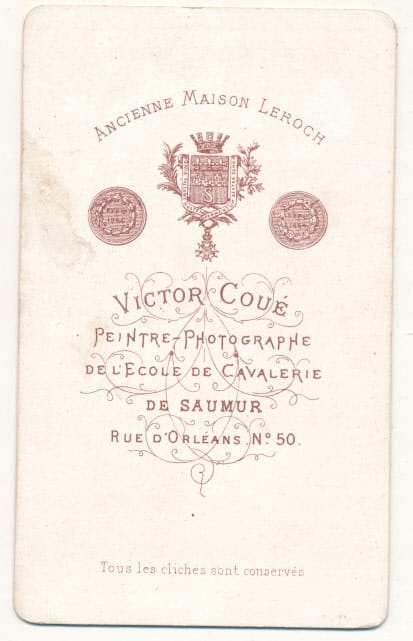 ANCIENNE MAISON LEROCH
S
VICTOR COUÉ
PEINTRE-PHOTOGRAPHE
DE L'ECOLE DE CAVALERIE
DE SAUMUR
RUE D'ORLÉANS. Nº 50.
Tous les cliches sont conservés